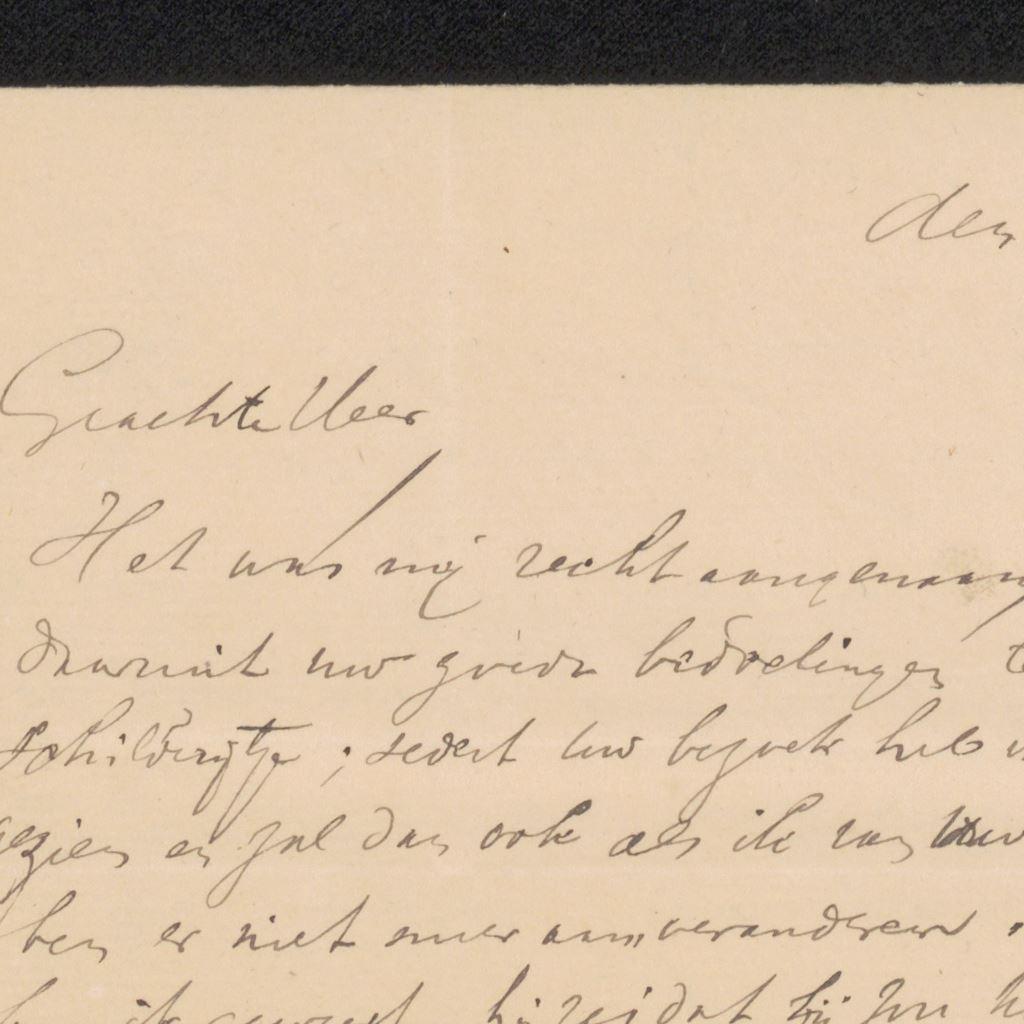 den
Geachte Heer
Het was mij recht aangenaam
daaruit uw goede bedoelingen
schilderijtje; sedert uw bezoek heb
gezien en zal dan ook als ik van uw
ben er niet meer aan veranderen.
ik geweest hij zei dat hij